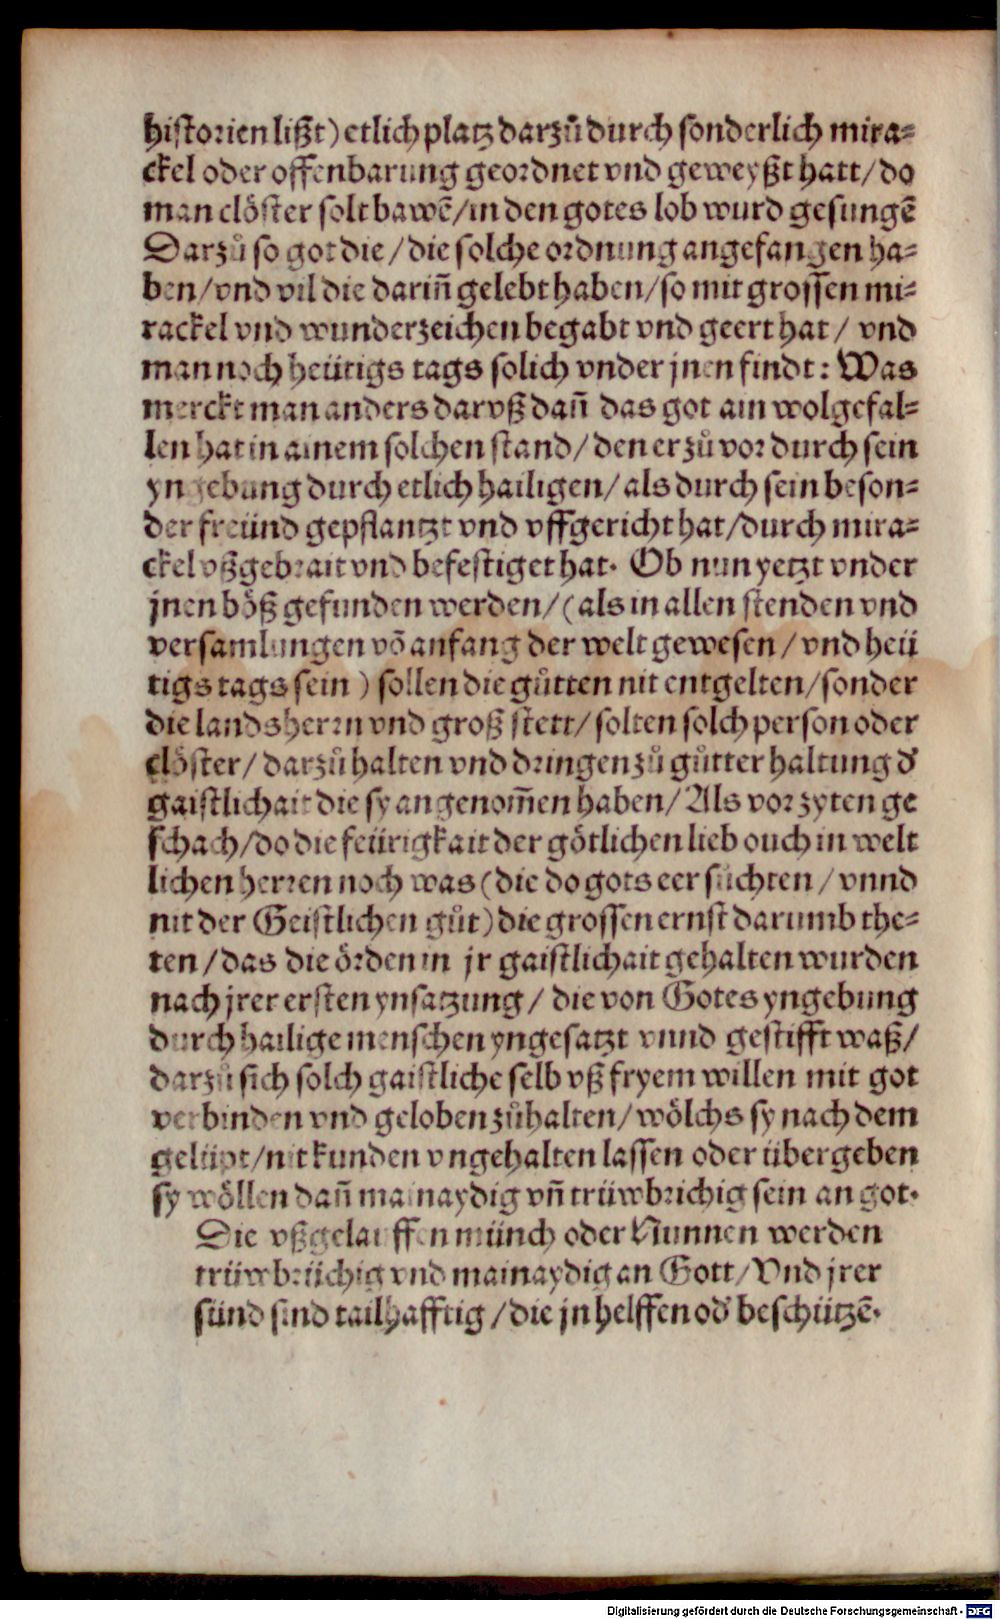 historien lißt) etlich platz darzů durch sonderlich mira=
ckel oder offenbarung geordnet vnd geweyßt hatt/ do
man clöster solt bawē/ in den gotes lob wurd gesungē
Darzů so got die/ die solche ordnung angefangen ha=
ben/ vnd vil die dariñ gelebt haben/ so mit grossen mi=
rackel vnd wunderzeichen begabt vnd geert hat/ vnd
man noch heütigs tags solich vnder jnen findt: Was
merckt man anders darvß dañ das got ain wolgefal=
len hat in ainem solchen stand/ den er zů vor durch sein
yngebung durch etlich hailigen/ als durch sein beson=
der freünd gepflantzt vnd vffgericht hat/ durch mira=
ckel vßgebrait vnd befestiget hat. Ob nun yetzt vnder
jnen böß gefunden werden/ (als in allen stenden vnd
versamlungen võ anfang der welt gewesen/ vnd heü
tigs tags sein) sollen die gůtten nit entgelten/ sonder
die landsherrn vnd groß stett/ solten solch person oder
clöster/ darzů halten vnd dringen zů gůtter haltung d'
gaistlichait die sy angenom̄en haben/ Als vor zyten ge
schach/ do die feürigkait der götlichen lieb ouch in welt
lichen herren noch was (die do gots eer sůchten/ vnnd
nit der Geistlichen gůt) die grossen ernst darumb the=
ten/ das die örden in jr gaistlichait gehalten wurden
nach jrer ersten ynsatzung/ die von Gotes yngebung
durch hailige menschen yngesatzt vnnd gestifft waß/
darzů sich solch gaistliche selb vß fryem willen mit got
verbinden vnd geloben zůhalten/ wölchs sy nach dem
gelüpt/ nit kunden vngehalten lassen oder übergeben
sy wöllen dañ mainaydig vñ trüwbrichig sein an got.
Die vßgelauffen münch oder Nunnen werden
trüwbrüchig vnd mainaydig an Gott/ Vnd jrer
sünd sind tailhafftig/ die jn helffen od' beschützē.
Digitalisierung gefördert durch die Deutsche Forschungsgemeinschaft - DFG